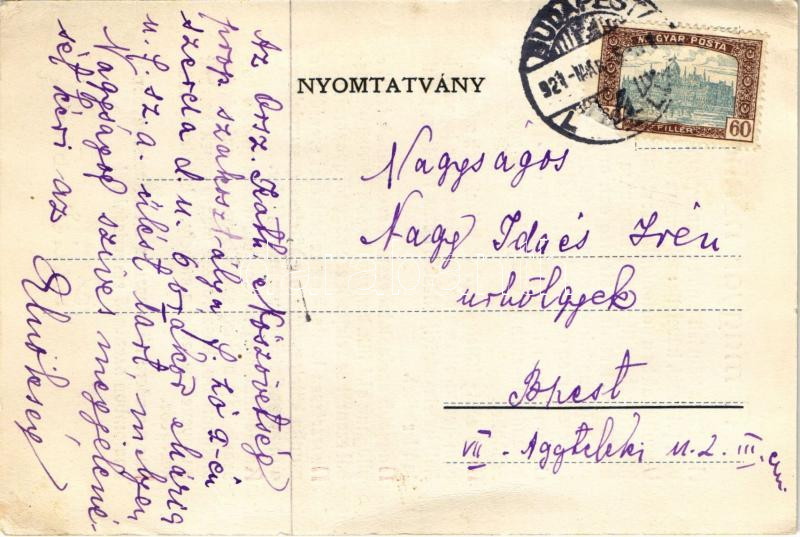 Az Orsz. Kath. Nőszövetség
prop szakosztálya f. hó 2-én
szerda d. u. 6 órakor
u. f. sz. a. ülést tart, melyen
Nagyságod szíves megjelené-
sét kéri az
Elnökség
NYOMTATVÁNY
BUDAPEST
921
MAGYAR POSTA
FILLÉR
60
Nagyságos
Nagy Ida és Irén
urhölgyek
Bpest
VII. Aggteleki u. 2. III. em.